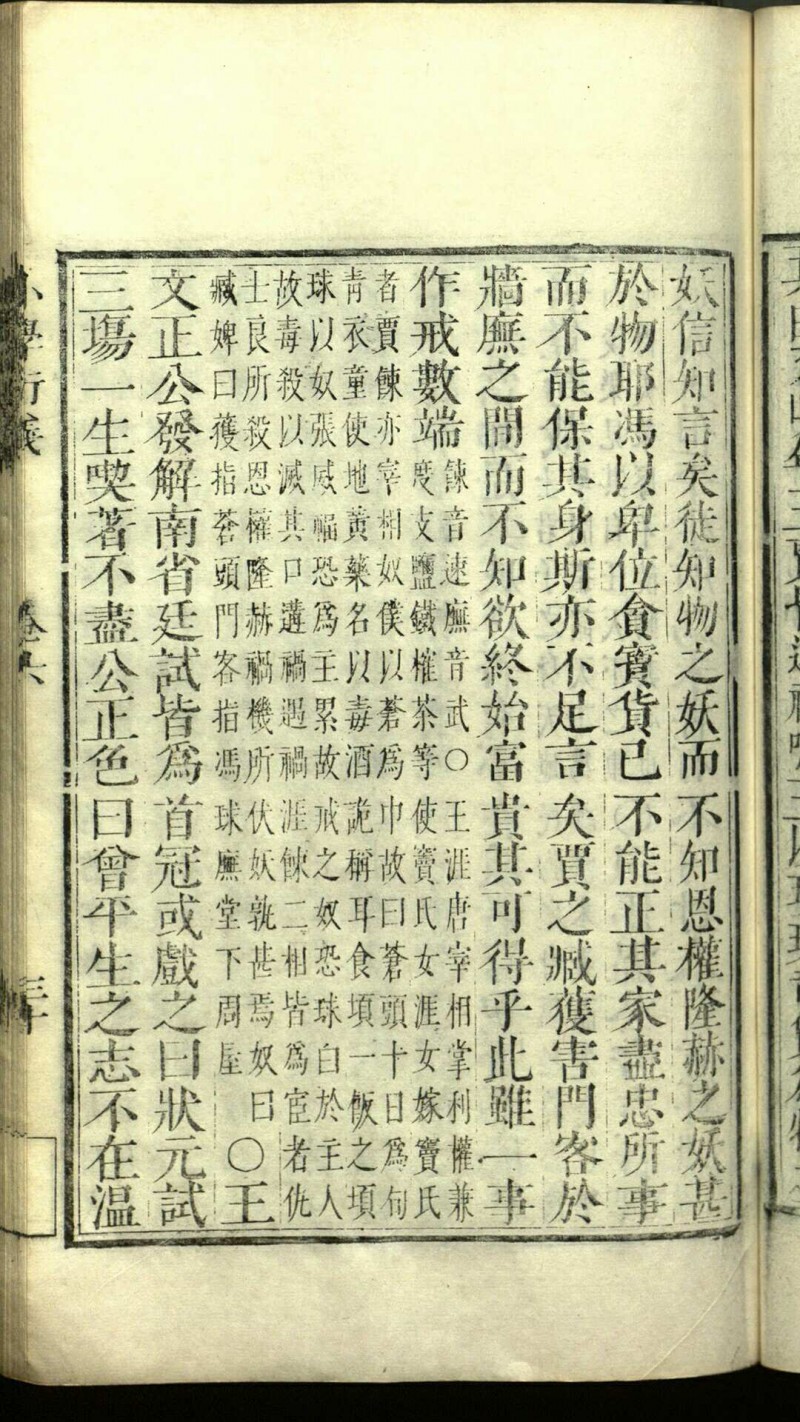 妖信知言矣徒知物之妖而不知恩權隆赫之妖甚
於物耶馮以卑位貪寳貨已不能正其家盡忠所事
而不能保其身斯亦不足言矣賈之臧獲害門客於
牆廡之間而不知欲終始富貴其可得乎此雖一事
作戒數端
餗音速廡音武○王涯唐宰相掌利權兼
度支鹽鐵榷茶等使竇氏女涯女嫁竇氏
者賈餗亦宰相奴僕以蒼爲巾故曰蒼頭十日爲旬
青衣童使地黃藥名以毒酒詭稱耳食頃一飯之頃
球以奴張威福恐爲主累故戒之奴恐球白於主人
故毒殺以滅其口遘禍遇禍涯餗二相皆爲宦者仇
士良所殺恩權隆赫禍機所伏妖孰甚焉奴曰
臧婢曰獲指蒼頭門客指馮球廡堂下周屋
○王
文正公發解南省廷試皆爲首冠或戲之曰狀元試
三塲一生喫著不盡公正色曰曾平生之志不在溫
小學衍義
卷六
三十